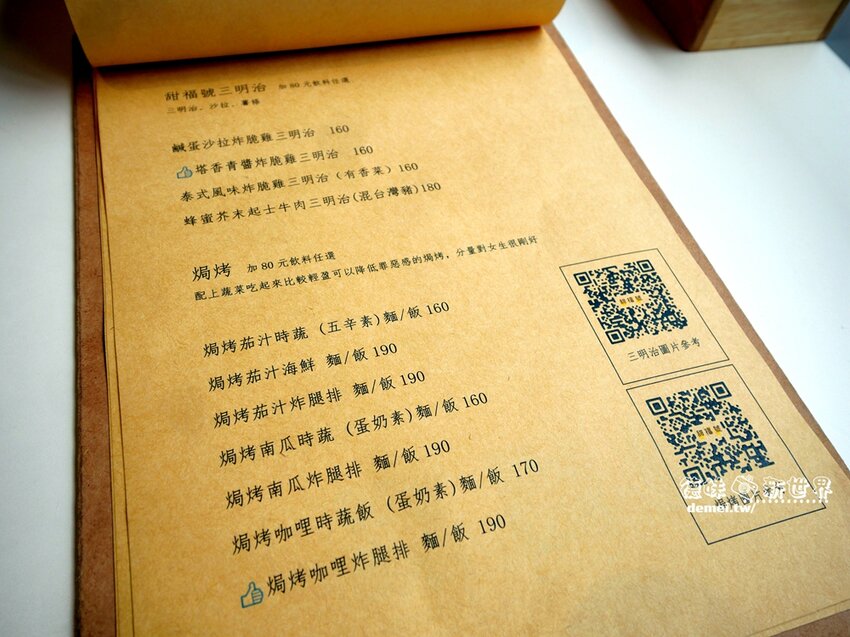 甜福號三明治 加80元飲料任選
三明治、沙拉、薯條
鹹蛋沙拉炸脆雞三明治 160
塔香青醬炸脆雞三明治 160
泰式風味炸脆雞三明治(有香菜)160
蜂蜜芥末起士牛肉三明治(混台灣豬)180
焗烤 加80元飲料任選
配上蔬菜吃起來比較輕盈可以降低罪惡感的焗烤，分量對女生很剛好
焗烤茄汁時蔬 (五辛素)麵/飯 160
焗烤茄汁海鮮 麵/飯 190
焗烤茄汁炸腿排 麵/飯 190
焗烤南瓜時蔬 (蛋奶素)麵/飯 160
焗烤南瓜炸腿排 麵/飯 190
焗烤咖哩時蔬飯 (蛋奶素)麵/飯 170
焗烤咖哩炸腿排 麵/飯 190
甜福號
三明治圖片參考
甜福號
焗烤
新世界
demei.tw/